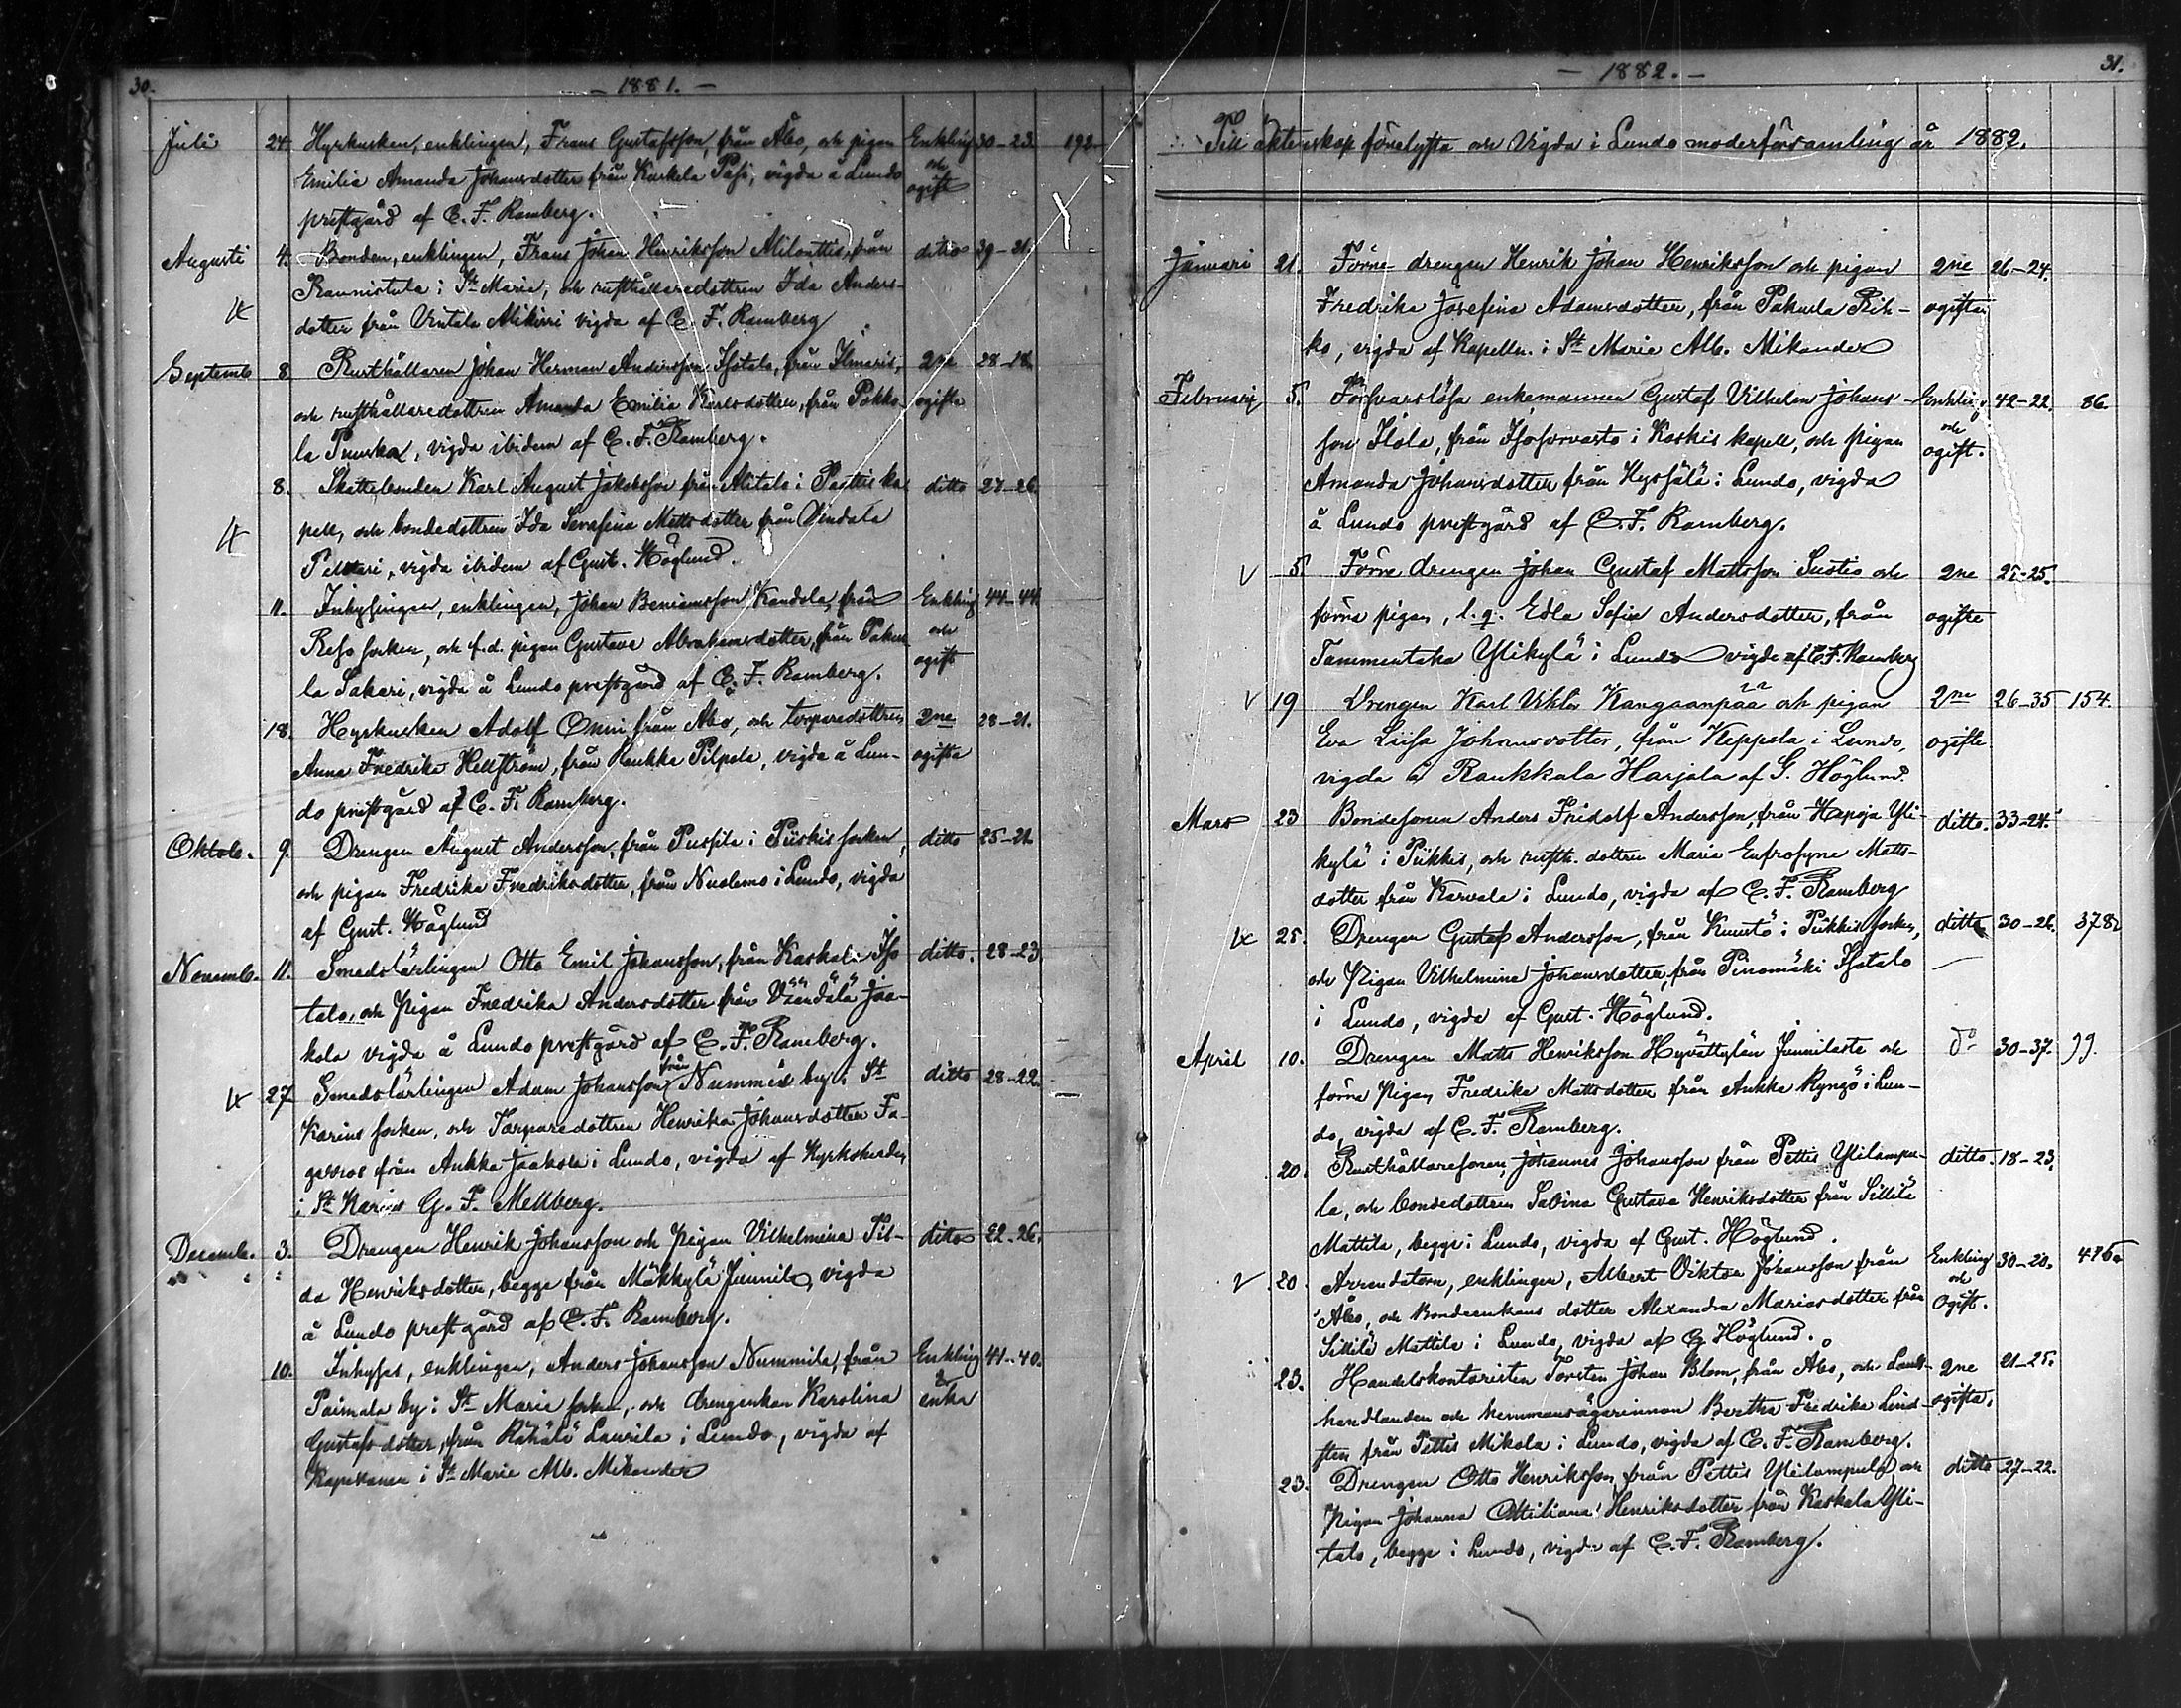 30.
- 1881. -
Juli 24. Hyrkusken, enklingen, Frans Gustafsson, från Åbo, och pigan Enkling 30-23. 192.
Emilia Amanda Johansdotter från Karkela Pasi, vigda å Lundo och
prestgård af C. F. Ramberg. ogift
Augusti 4. Bonden, enklingen, Frans Johan Henriksson Alilonttis, från ditto 39-21.
Raunistula i St Marie, och rusthållaredottren Ida Anders-
dotter från Untala Alikirri vigda af C. F. Ramberg
Septemb. 8. Rusthållaren Johan Herman Andersson Isotalo, från Ilmaris, 2ne 28-18.
och rusthållaredottren Amanda Emilia Karlsdotter, från Pokko- ogifta
la Punska, vigda ibidem af C. F. Ramberg.
8. Skattebonden Karl August Jakobsson från Alitalo i Pasttis ka- ditto 27-26.
pell, och bondedottren Ida Serafina Mattsdotter från Vindala
Peltari, vigda ibidem af Gust. Höglund.
11. Inhysingen, enklingen, Johan Beniamsson Kandola, från Enkling 44-44.
Reso socken, och f.d. pigan Gustava Abrahamsdotter, från Paku- och
la Sakari, vigda å Lundo prestgård af C. F. Ramberg. ogift
18. Hyrkusken Adolf Omin från Åbo, och torparedottren 2ne 28-21.
Anna Fredrika Hellström, från Raukka Pilpola, vigda å Lun- ogifta
do prestgård af C. F. Ramberg.
Oktob. 9. Drengen August Andersson, från Puspila i Piikkis socken, ditto 25-21.
och pigan Fredrika Fredriksdotter, från Nuolemo i Lundo, vigda
af Gust. Höglund
Novemb. 11. Smedslärlingen Otto Emil Johansson, från Kaskala Iso ditto. 28-23.
talo, och pigan Fredrika Andersdotter från Väändälä Jaa-
kola vigda å Lundo prestgård af C. F. Ramberg.
27 Smedslärlingen Adam Johansson från Nummis by i St ditto 28-22.
Karins socken, och Torparedottren Henrika Johansdotter Fa-
gerros från Aukka Jaakola i Lundo, vigda af Kyrkoherden
i St Karins G. F. Mellberg.
Decemb. 3. Drengen Henrik Johansson och pigan Vilhelmina Til- ditto 22-26.
da Henriksdotter, begge från Mäkkylä Junnila, vigda
å Lundo prestgård af C. F. Ramberg.
10. Inhyses, enklingen, Anders Johansson Nummila, från Enkling 41-40.
Paimala by i St Marie socken, och drengenkan Karolina &
Gustafsdotter, från Rähälä Laurila i Lundo, vigda af enka
Kapellanen i St Marie Alb. Mikander
31.
- 1882. -
Till äktenskap förelysta och Vigda i Lundo moderförsamling år 1882.
Januari 21. Förre drengen Henrik Johan Henriksson och pigan 2ne 26-24.
Fredrika Josefina Adamsdotter, från Pakurla Rih- ogifta
ko, vigda af Kapelln. i St Marie Alb. Mikander
Februarij 5. Försvarslösa enkemannen Gustaf Vilhelm Johans- Enkling 42-22. 86.
son Ilola, från Isosorvasto i Koskis kapell, och pigan och
Amanda Johansdotter från Hypsälä i Lundo, vigda ogift.
å Lundo prestgård af C. F. Ramberg.
V 5. Förre drengen Johan Gustaf Mattsson Suotio och 2ne 25-25.
förra pigan, l. q. Edla Sofia Andersdotter, från ogifte
Tammentaka Ylikylä i Lundo vigda af C. F. Ramberg
V 19 Drengen Karl Viktor Kangaanpää och pigan 2ne 26-35 154.
Eva Liisa Johansdotter, från Keppola i Lundo, ogifte
vigda å Raukkala Harjala af G. Höglund.
Mars 23 Bondesonen Anders Fridolf Andersson, från Hapoja Yli- ditto. 33-24.
kylä i Piikkis, och rusth. dottren Maria Eufrosyne Matts-
dotter från Karvala i Lundo, vigda af C. F. Ramberg
25. Drengen Gustaf Andersson, från Kuustö i Piikkis socken, ditto 30-26. 378
och Pigan Vilhelmina Johansdotter, från Pinomäki Isotalo
i Lundo, vigda af Gust. Höglund.
April 10. Drengen Matts Henriksson Hyvättylän Junnilasta och do 30-37. 99.
förra Pigan Fredrika Mattsdotter från Aukka Ryngö i Lun-
do, vigda af C. F. Ramberg.
20. Rusthållaresonen, Johannes Johansson från Pettis Ylilampu- ditto. 18-23.
la, och bondedottren Sabina Gustava Henriksdotter från Sillilä
Mattila, begge i Lundo, vigda af Gust. Höglund.
V 20. Arrendatorn, enklingen, Albert Viktor Johansson från Enkling 30-20.
Åbo, och Bondeenkans dotter Alexandra Mariasdotter från och
Sillilä Mattila i Lundo, vigda af G Höglund. Ogift.
23. Handelskontoristen Torsten Johan Blom, från Åbo, och Landt- 2ne 21-25.
handlanden och hemmansägarinnan Bertha Fredrika Lind- ogifta.
sten från Pettis Mikola i Lundo, vigda af C. F. Ramberg.
23. Drengen Otto Henriksson från Pettis Ylilampula, och ditto 27-22.
Pigan Johanna Ottiliana Henriksdotter från Kaskala Yli-
talo, begge i Lundo, vigda af C. F. Ramberg.